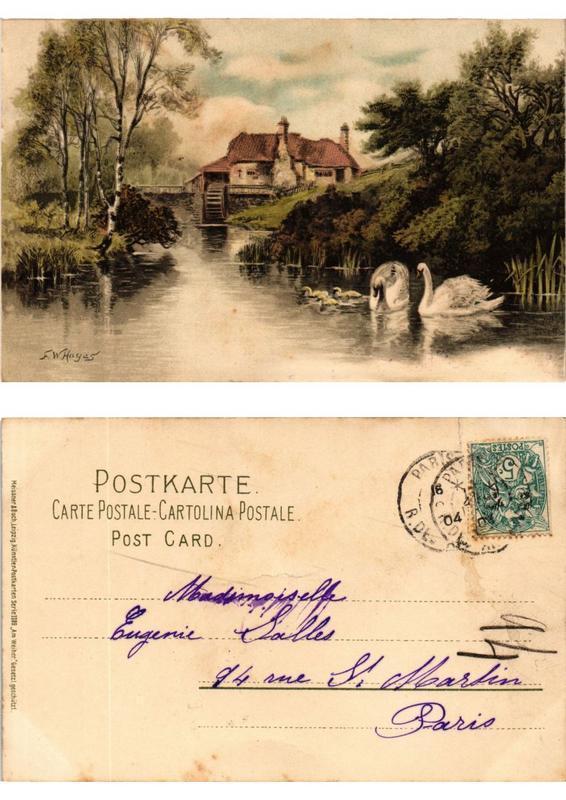 F.W. Hayes
POSTKARTE.
CARTE POSTALE-CARTOLINA POSTALE.
POST CARD.
PARIS
04
R.DE
POSTES
5
Mademoiselle
Eugenie Salles
94 rue St. Martin
Paris
Meissner & Buch, Leipzig. Künstler-Postkarten Serie "Am Weiher" Gesetz. geschützt.